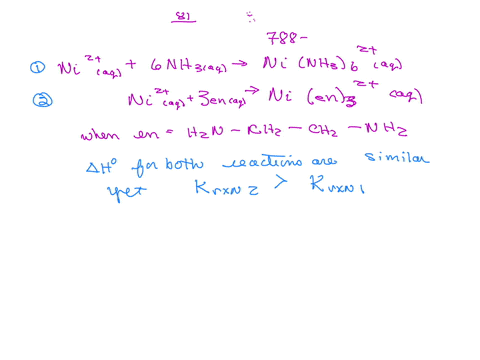 81
788-
① Ni²⁺(aq) + 6NH₃(aq) → Ni(NH₃)₆²⁺(aq)
② Ni²⁺(aq) + 3en(aq) → Ni(en)₃²⁺(aq)
when en = H₂N - CH₂ - CH₂ - NH₂
ΔH° for both reactions are similar
yet Krxn2 > Krxn1